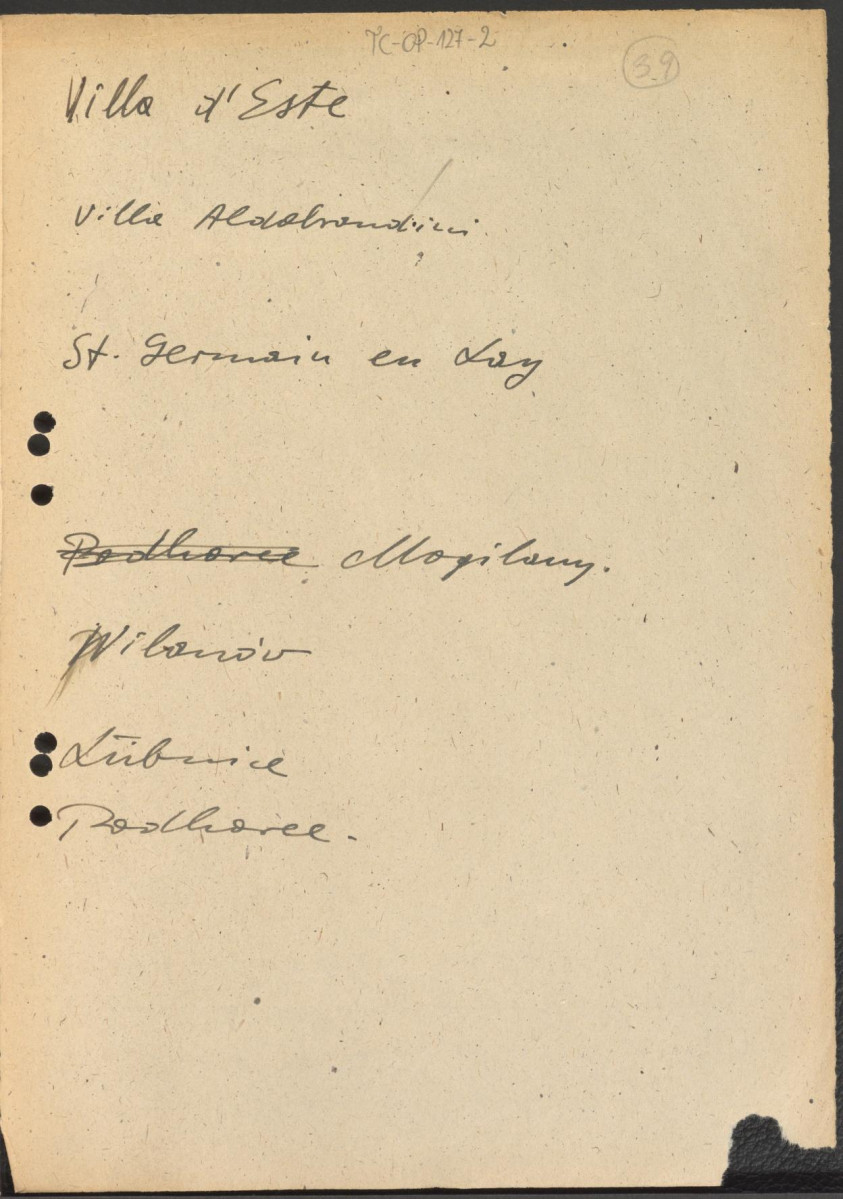 TC-OP-127-2
39
Villa d'Este
Villa Aldobrandini
St. Germain en Lay
~~Podhorce~~ Mogilany.
Wilanów
Łubnice
Podhorce.